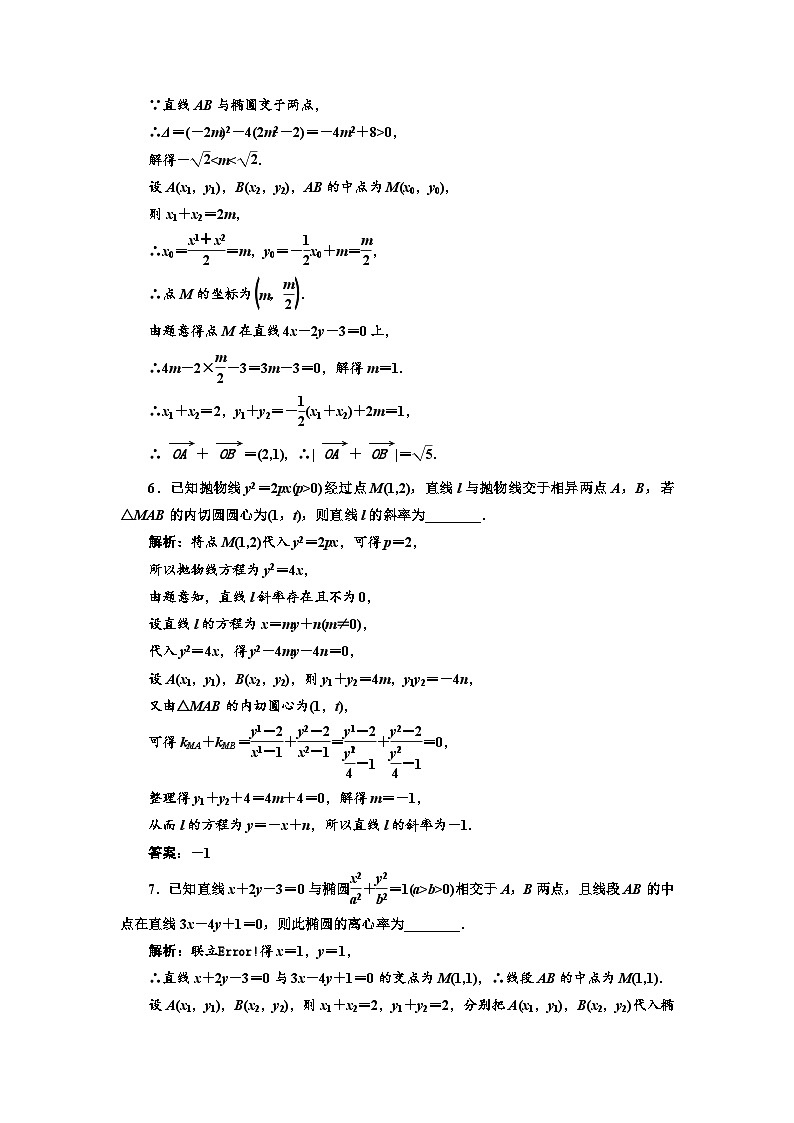 ∵直线 AB 与椭圆交于两点，
∴Δ＝(－2m)²－4(2m²－2)＝－4m²＋8>0，
解得－√2<m<√2.
设 A(x₁，y₁)，B(x₂，y₂)，AB 的中点为 M(x₀，y₀)，
则 x₁＋x₂＝2m，
∴x₀＝(x1＋x2)/2＝m，y₀＝－1/2x₀＋m＝m/2，
∴点 M 的坐标为(m，m/2).
由题意得点 M 在直线 4x－2y－3＝0 上，
∴4m－2×m/2－3＝3m－3＝0，解得 m＝1.
∴x₁＋x₂＝2，y₁＋y₂＝－1/2(x₁＋x₂)＋2m＝1，
∴ OA→＋ OB→＝(2,1)，∴| OA→＋ OB→|＝√5.
6．已知抛物线 y²＝2px(p>0)经过点 M(1,2)，直线 l 与抛物线交于相异两点 A，B，若
△MAB 的内切圆圆心为(1，t)，则直线 l 的斜率为________．
解析：将点 M(1,2)代入 y²＝2px，可得 p＝2，
所以抛物线方程为 y²＝4x，
由题意知，直线 l 斜率存在且不为 0，
设直线 l 的方程为 x＝my＋n(m≠0)，
代入 y²＝4x，得 y²－4my－4n＝0，
设 A(x₁，y₁)，B(x₂，y₂)，则 y₁＋y₂＝4m，y₁y₂＝－4n，
又由△MAB 的内切圆心为(1，t)，
可得 kMA＋kMB＝(y1－2)/(x1－1)＋(y2－2)/(x2－1)＝(y1－2)/(y²/4－1)＋(y2－2)/(y²/4－1)＝0，
整理得 y₁＋y₂＋4＝4m＋4＝0，解得 m＝－1，
从而 l 的方程为 y＝－x＋n，所以直线 l 的斜率为－1.
答案：－1
7．已知直线 x＋2y－3＝0 与椭圆x²/a²＋y²/b²＝1(a>b>0)相交于 A，B 两点，且线段 AB 的中
点在直线 3x－4y＋1＝0，则此椭圆的离心率为________．
解析：联立Error!得 x＝1，y＝1，
∴直线 x＋2y－3＝0 与 3x－4y＋1＝0 的交点为 M(1,1)，∴线段 AB 的中点为 M(1,1).
设 A(x₁，y₁)，B(x₂，y₂)，则 x₁＋x₂＝2，y₁＋y₂＝2，分别把 A(x₁，y₁)，B(x₂，y₂)代入椭